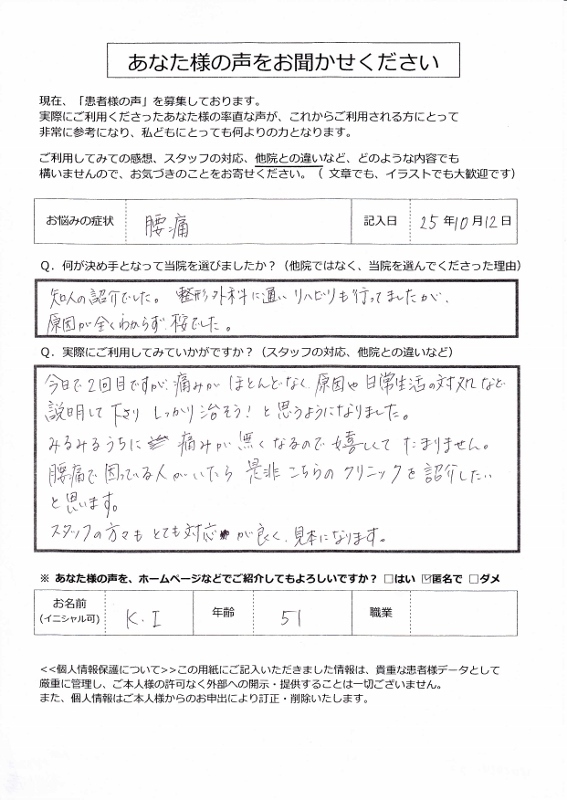 あなた様の声をお聞かせください
現在、「患者様の声」を募集しております。
実際にご利用くださったあなた様の率直な声が、これからご利用される方にとって
非常に参考になり、私どもにとっても何よりの力となります。
ご利用してみての感想、スタッフの対応、他院との違いなど、どのような内容でも
構いませんので、お気づきのことをお寄せください。（ 文章でも、イラストでも大歓迎です）
お悩みの症状 腰痛 記入日 25年10月12日
Q. 何が決め手となって当院を選びましたか？（他院ではなく、当院を選んでくださった理由）
知人の紹介でした。 整形外科に通いリハビリも行ってましたが、
原因が全くわからず でした。
Q. 実際にご利用してみていかがですか？（スタッフの対応、他院との違いなど）
今日で2回目ですが、痛みがほとんどなく 原因や日常生活の対処など
説明して下さり しっかり治そう！と思うようになりました。
みるみるうちに 痛みが無くなるので嬉しくてたまりません。
腰痛で困っている人がいたら 是非こちらのクリニックを紹介したい
と思います。
スタッフの方々もとても対応が良く、見本になります。
※ あなた様の声を、ホームページなどでご紹介してもよろしいですか？ □はい ☑匿名で □ダメ
お名前 K.I 年齢 51 職業
(イニシャル可)
<<個人情報保護について>>この用紙にご記入いただきました情報は、貴重な患者様データとして
厳重に管理し、ご本人様の許可なく外部への開示・提供することは一切ございません。
また、個人情報はご本人様からのお申出により訂正・削除いたします。